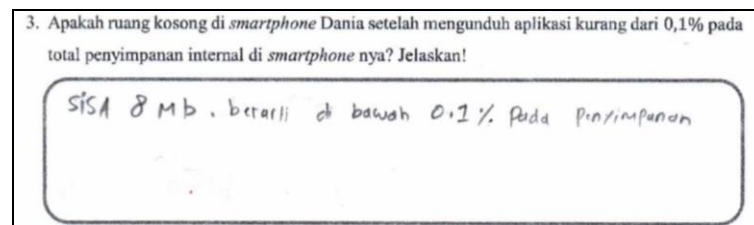 3. Apakah ruang kosong di smartphone Dania setelah mengunduh aplikasi kurang dari 0,1% pada
total penyimpanan internal di smartphone nya? Jelaskan!
SISA 8 Mb . berarti di bawah 0.1 % Pada Penyimpanan